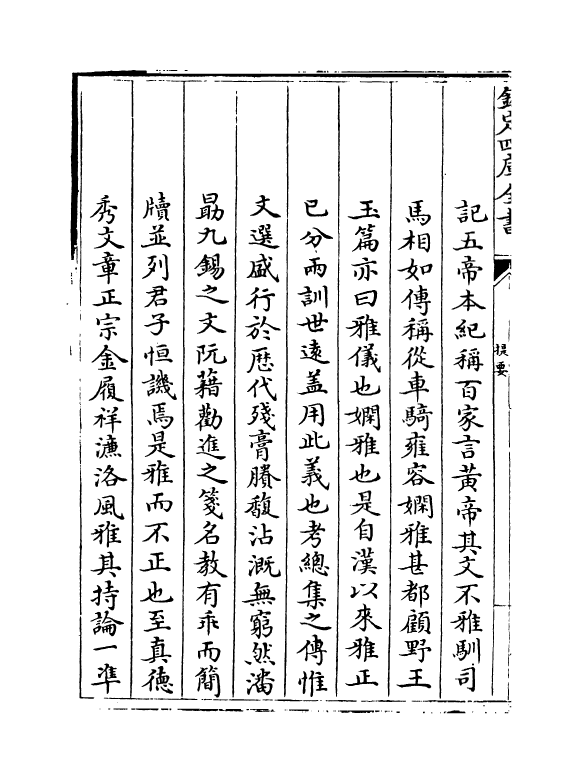 欽定四庫全書
提要
記五帝本紀稱百家言黃帝其文不雅馴司
馬相如傳稱從車騎雍容嫻雅甚都顧野王
玉篇亦曰雅儀也嫻雅也是自漢以來雅正
已分兩訓世遠盖用此義也考總集之傳惟
文選盛行於歴代殘膏賸馥沾溉無窮然潘
勗九錫之文阮藉勸進之箋名教有乖而簡
牘並列君子恒譏焉是雅而不正也至真德
秀文章正宗金履祥濂洛風雅其持論一準